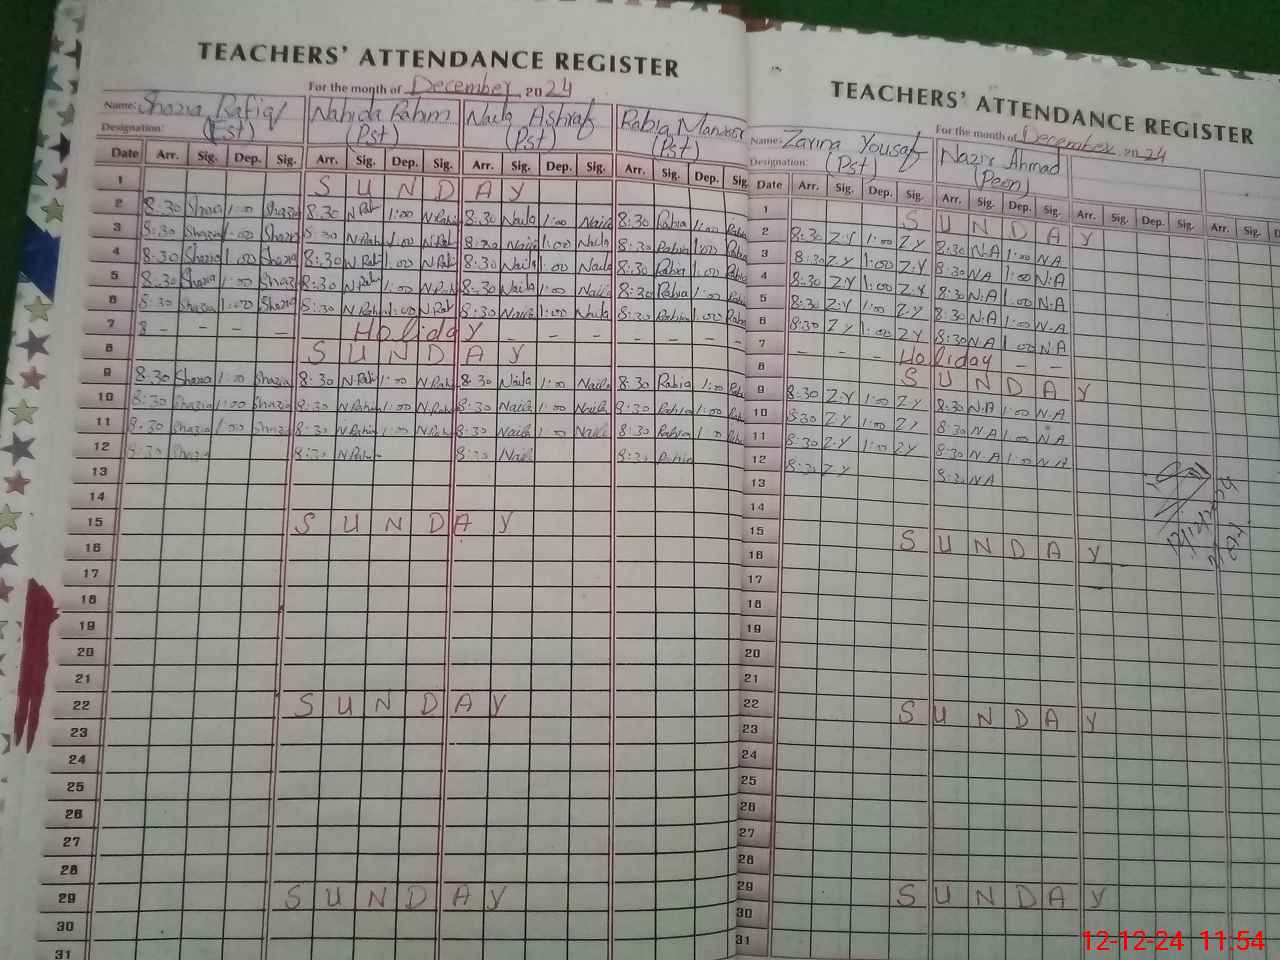 TEACHERS' ATTENDANCE REGISTER
For the month of December 2024
Name: Shazia Rafiq Nahida Rahim Naila Ashraf Rabia Manzoor
Designation: (Est) (Pst) (Pst) (Pst)
Date Arr. Sig. Dep. Sig. Arr. Sig. Dep. Sig. Arr. Sig. Dep. Sig. Arr. Sig. Dep. Sig.
1 S U N D A Y
2 8:30 Shazia 1:00 Shazia 8:30 N Rahi 1:00 N Rahi 8:30 Naila 1:00 Naila 8:30 Rabia 1:00 Rabia
3 8:30 Shazia 1:00 Shazia 8:30 N Rahi 1:00 N Rahi 8:30 Naila 1:00 Naila 8:30 Rabia 1:00 Rabia
4 8:30 Shazia 1:00 Shazia 8:30 N Rahi 1:00 N Rahi 8:30 Naila 1:00 Naila 8:30 Rabia 1:00 Rabia
5 8:30 Shazia 1:00 Shazia 8:30 N Rahi 1:00 N Rahi 8:30 Naila 1:00 Naila 8:30 Rabia 1:00 Rabia
6 8:30 Shazia 1:00 Shazia 8:30 N Rahi 1:00 N Rahi 8:30 Naila 1:00 Naila 8:30 Rabia 1:00 Rabia
7 8 - - - - Holiday - - - - - - -
8 S U N D A Y
9 8:30 Shazia 1:00 Shazia 8:30 N Rahi 1:00 N Rahi 8:30 Naila 1:00 Naila 8:30 Rabia 1:00 Rabia
10 8:30 Shazia 1:00 Shazia 8:30 N Rahi 1:00 N Rahi 8:30 Naila 1:00 Naila 8:30 Rabia 1:00 Rabia
11 8:30 Shazia 1:00 Shazia 8:30 N Rahi 1:00 N Rahi 8:30 Naila 1:00 Naila 8:30 Rabia 1:00 Rabia
12 8:30 Shazia 8:30 N Rahi 8:30 Naila 8:30 Rabia
13
14
15 S U N D A Y
16
17
18
19
20
21
22 S U N D A Y
23
24
25
26
27
28
29 S U N D A Y
30
31
TEACHERS' ATTENDANCE REGISTER
For the month of December 2024
Name: Zarina Yousaf Nazir Ahmad
Designation: (Pst) (Peon)
Date Arr. Sig. Dep. Sig. Arr. Sig. Dep. Sig. Arr. Sig. Dep. Sig. Arr. Sig. D
1 S U N D A Y
2 8:30 Z.Y 1:00 Z.Y 8:30 N.A 1:00 N.A
3 8:30 Z.Y 1:00 Z.Y 8:30 N.A 1:00 N.A
4 8:30 Z.Y 1:00 Z.Y 8:30 N.A 1:00 N.A
5 8:30 Z.Y 1:00 Z.Y 8:30 N.A 1:00 N.A
6 8:30 Z.Y 1:00 Z.Y 8:30 N.A 1:00 N.A
7 - - - Holiday - -
8 S U N D A Y
9 8:30 Z.Y 1:00 Z.Y 8:30 N.A 1:00 N.A
10 8:30 Z.Y 1:00 Z.Y 8:30 N.A 1:00 N.A
11 8:30 Z.Y 1:00 Z.Y 8:30 N.A 1:00 N.A
12 8:30 Z.Y 8:30 N.A
13
14
15 S U N D A Y
16
17
18
19
20
21
22 S U N D A Y
23
24
25
26
27
28
29 S U N D A Y
30
31
12-12-24 11.54